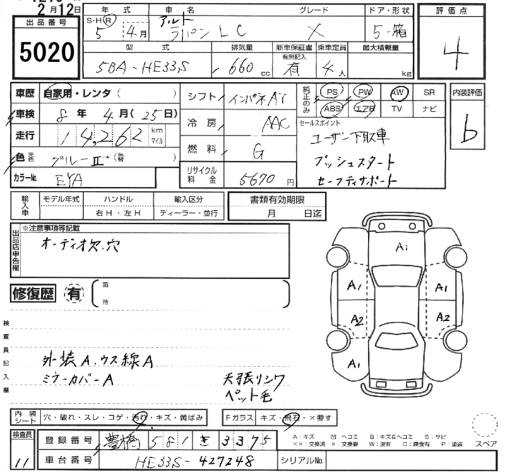 2月12日
出品番号 5020
年式 車名 グレード ドア・形状
S・H・R 5年 4月 アルト ラパン LC X 5・箱
型式 排気量 新車保証書 乗定員 最大積載量
5BA-HE33S 660cc 有 4人 kg
評価点 4
車歴 自家用・レンタ( )
車検 8年 4月(25日)
走行 14,262 km マイル
色 ブルーⅡ (替)
カラーNo. EYA
シフト インパネAT
冷房 AAC
燃料 G
リサイクル料金 5670円
純正のみ PS PW AW SR
ABS エアB TV ナビ
セールスポイント
ユーザー下取車
プッシュスタート
セーフティサポート
内装評価 b
輸入車 モデル年式 ハンドル 輸入区分
年 右H・左H ディーラー・並行
書類有効期限
月 日迄
出品店申告欄 ※注意事項等記載
オーディオ欠.穴
修復歴 有 箇所
検査員記入欄
外装A.ウス線A
ミラーカバーA
天張リシワ
ペット毛
Ai
A1 A1
A2 A2
A1 A1
内装シート 穴・破れ・スレ・コゲ・汚れ・キズ・黄ばみ
Fガラス キズ・飛石・×要す
スペア
検査員 11
登録番号 豊橋 581 を 3375
A:キズ U:ヘコミ B:キズ&ヘコミ S:サビ
XX:交換済 X:交換要 W:波 C:腐食有 P:塗装
車台番号 HE33S-427248 シリアルNo.